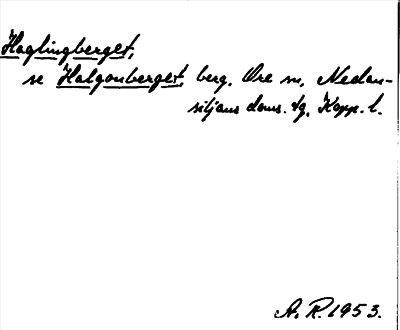 Haglingberget,
se Halgonberget, berg, Ore sn, Nedan-
siljans doms. tg, Kopp. l.
A. R. 1953.